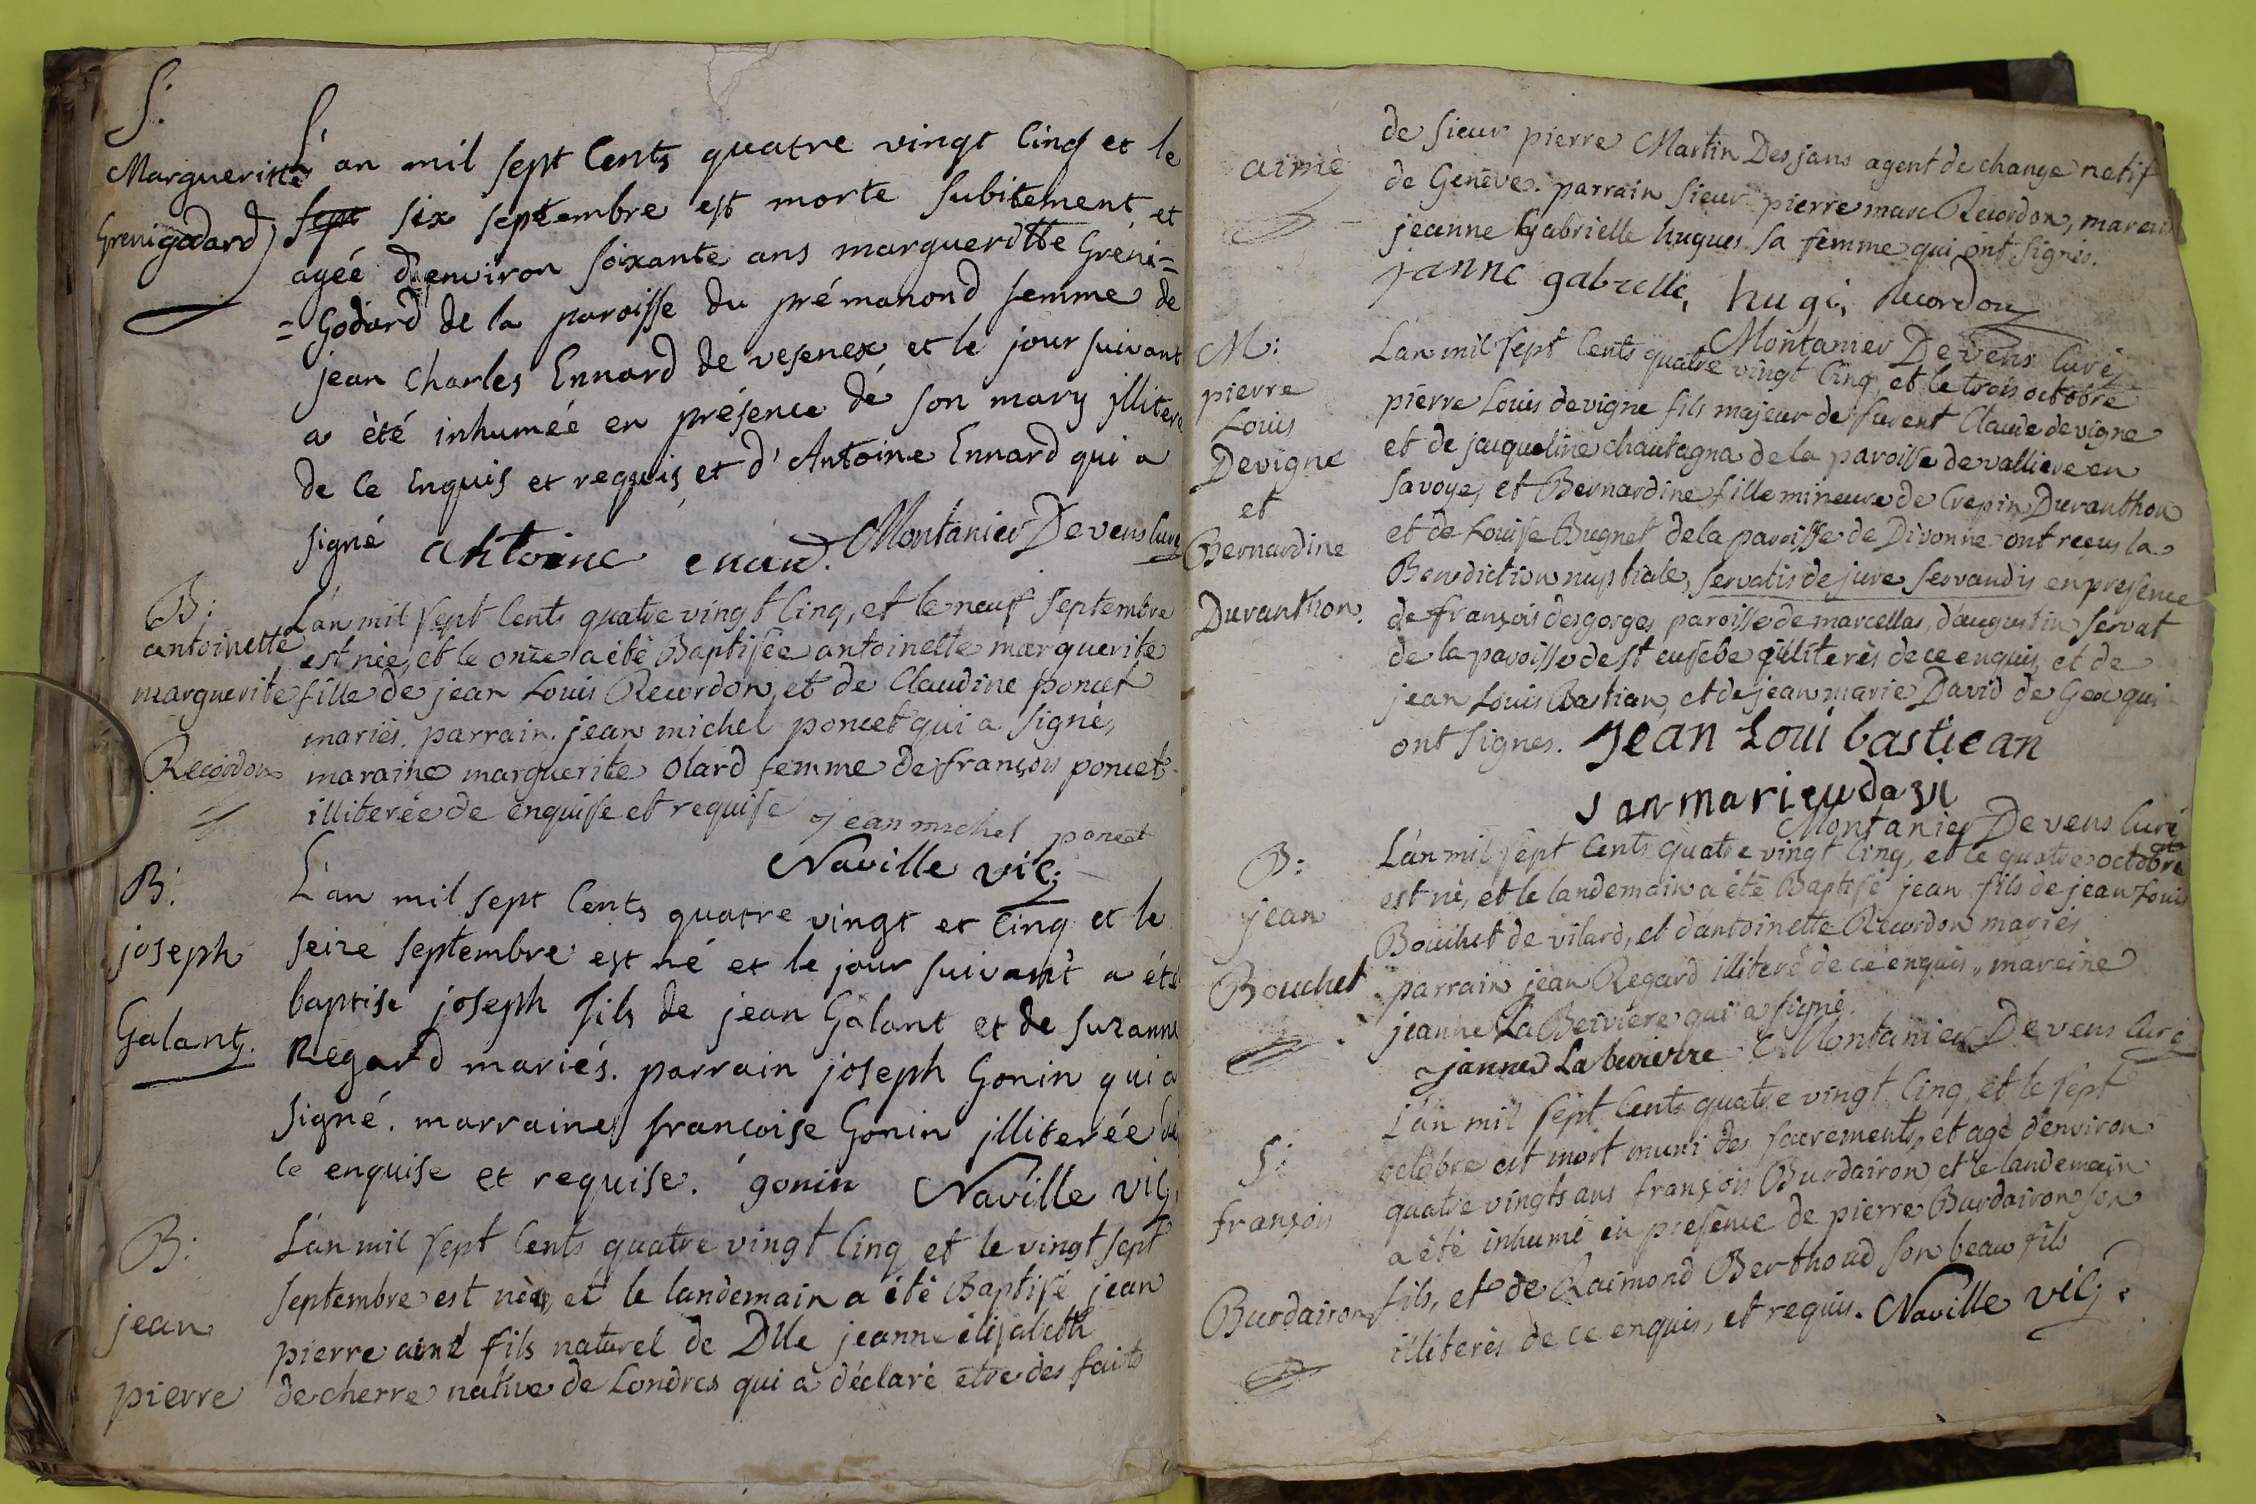 S:
Margueritte
Grenigodard
L'an mil sept Cents quatre vingt Cinq et le
sept six septembre est morte subitement et
agéé d'environ soixante ans margueritte Gréni=
=Godard de la paroisse du prémanond femme de
jean Charles Ennard de vesenex et le jour suivant
a èté inhuméé en présence de son mary jlliteré
de Ce Enquis et requis et d'Antoine Ennard qui a
signé antoine enard. Montanier Devens Curé
B:
antoinette
marguerite
Recordon
L'an mil sept Cents quatre vingt Cinq, et le neuf septembre
est née, et le onze a été Baptisée antoinette marguerite
fille de jean Louis Recordon, et de Claudine poncet
mariés. parrain. jean michel poncet qui a signé,
maraine marguerite olard femme de françois poncet
illiterée de enquise et requise jean michel poncet
Naville vic:
B:
joseph
Galant.
L'an mil sept Cents quatre vingt et Cinq et le
seize septembre est né et le jour suivant a été
baptise joseph fils de jean Galant et de suzanne
Regard mariés. parrain joseph Gonin qui a
signé. marraine francoise Gonin jlliterée de
ce enquise et requise. gonin Naville vic:
B:
jean
pierre
L'an mil sept Cents quatre vingt Cinq et le vingt sept
septembre est né, et le landemain a été Baptisé jean
pierre aimé fils naturel de Dlle jeanne élisabeth
de cherre native de Londres qui a déclaré etre des faits
aimé
de sieur pierre Martin Desjans agent de change natif
de Genève. parrain sieur pierre marc Recordon, maraine
jeanne Gabrielle hugues sa femme qui ont signés.
janne gabrelle, hugi, Recordon
Montanier Devens Curé
M:
pierre
Louis
Devigne
et
Bernardine
Duranthon.
L'an mil sept Cents quatre vingt Cinq, et le trois octobre
pierre Louis devigne fils majeur de furent Claude devigne
et de jacqueline chautagna de la paroisse de valliere en
savoye, et Bernardine fille mineure de Crepin Duranthon
et de Louise Bugnet de la paroisse de Divonne ont reçus la
Benediction nuptiale, servatis de jure servandis en presence
de françois desgorges paroisse de marcellas, d'augustin servat
de la paroisse de st eusebe illiterés de ce enquis, et de
jean Louis Bastian, et de jean marie David de Gex qui
ont signes. jean Loui bastiean
Montanier Devens Curé
B:
jean
Bouchet
L'an mil sept Cents quatre vingt Cinq, et le quatre octobre
est né, et le landemain a été Baptisé jean fils de jean Louis
Bouchet de vilard, et d'antoinette Recordon mariés
parrain jean Regard illiteré de ce enquis, maraine
jeanne La Beiviere qui a signé.
janne Laburierre Montanier Devens Curé
S:
françois
Burdairon
L'an mil sept Cents quatre vingt Cinq, et le sept
octobre est mort muni des sacrements, et agé d'environ
quatre vingts ans françois Burdairon et le landemain
a été inhumé en presence de pierre Burdairon son
fils, et de Raimond Berthoud son beau fils
illiterés de ce enquis, et requis. Naville vic: